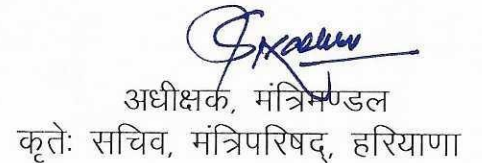 अधीक्षक, मंत्रिमण्डल
कृतेः सचिव, मंत्रिपरिषद्, हरियाणा